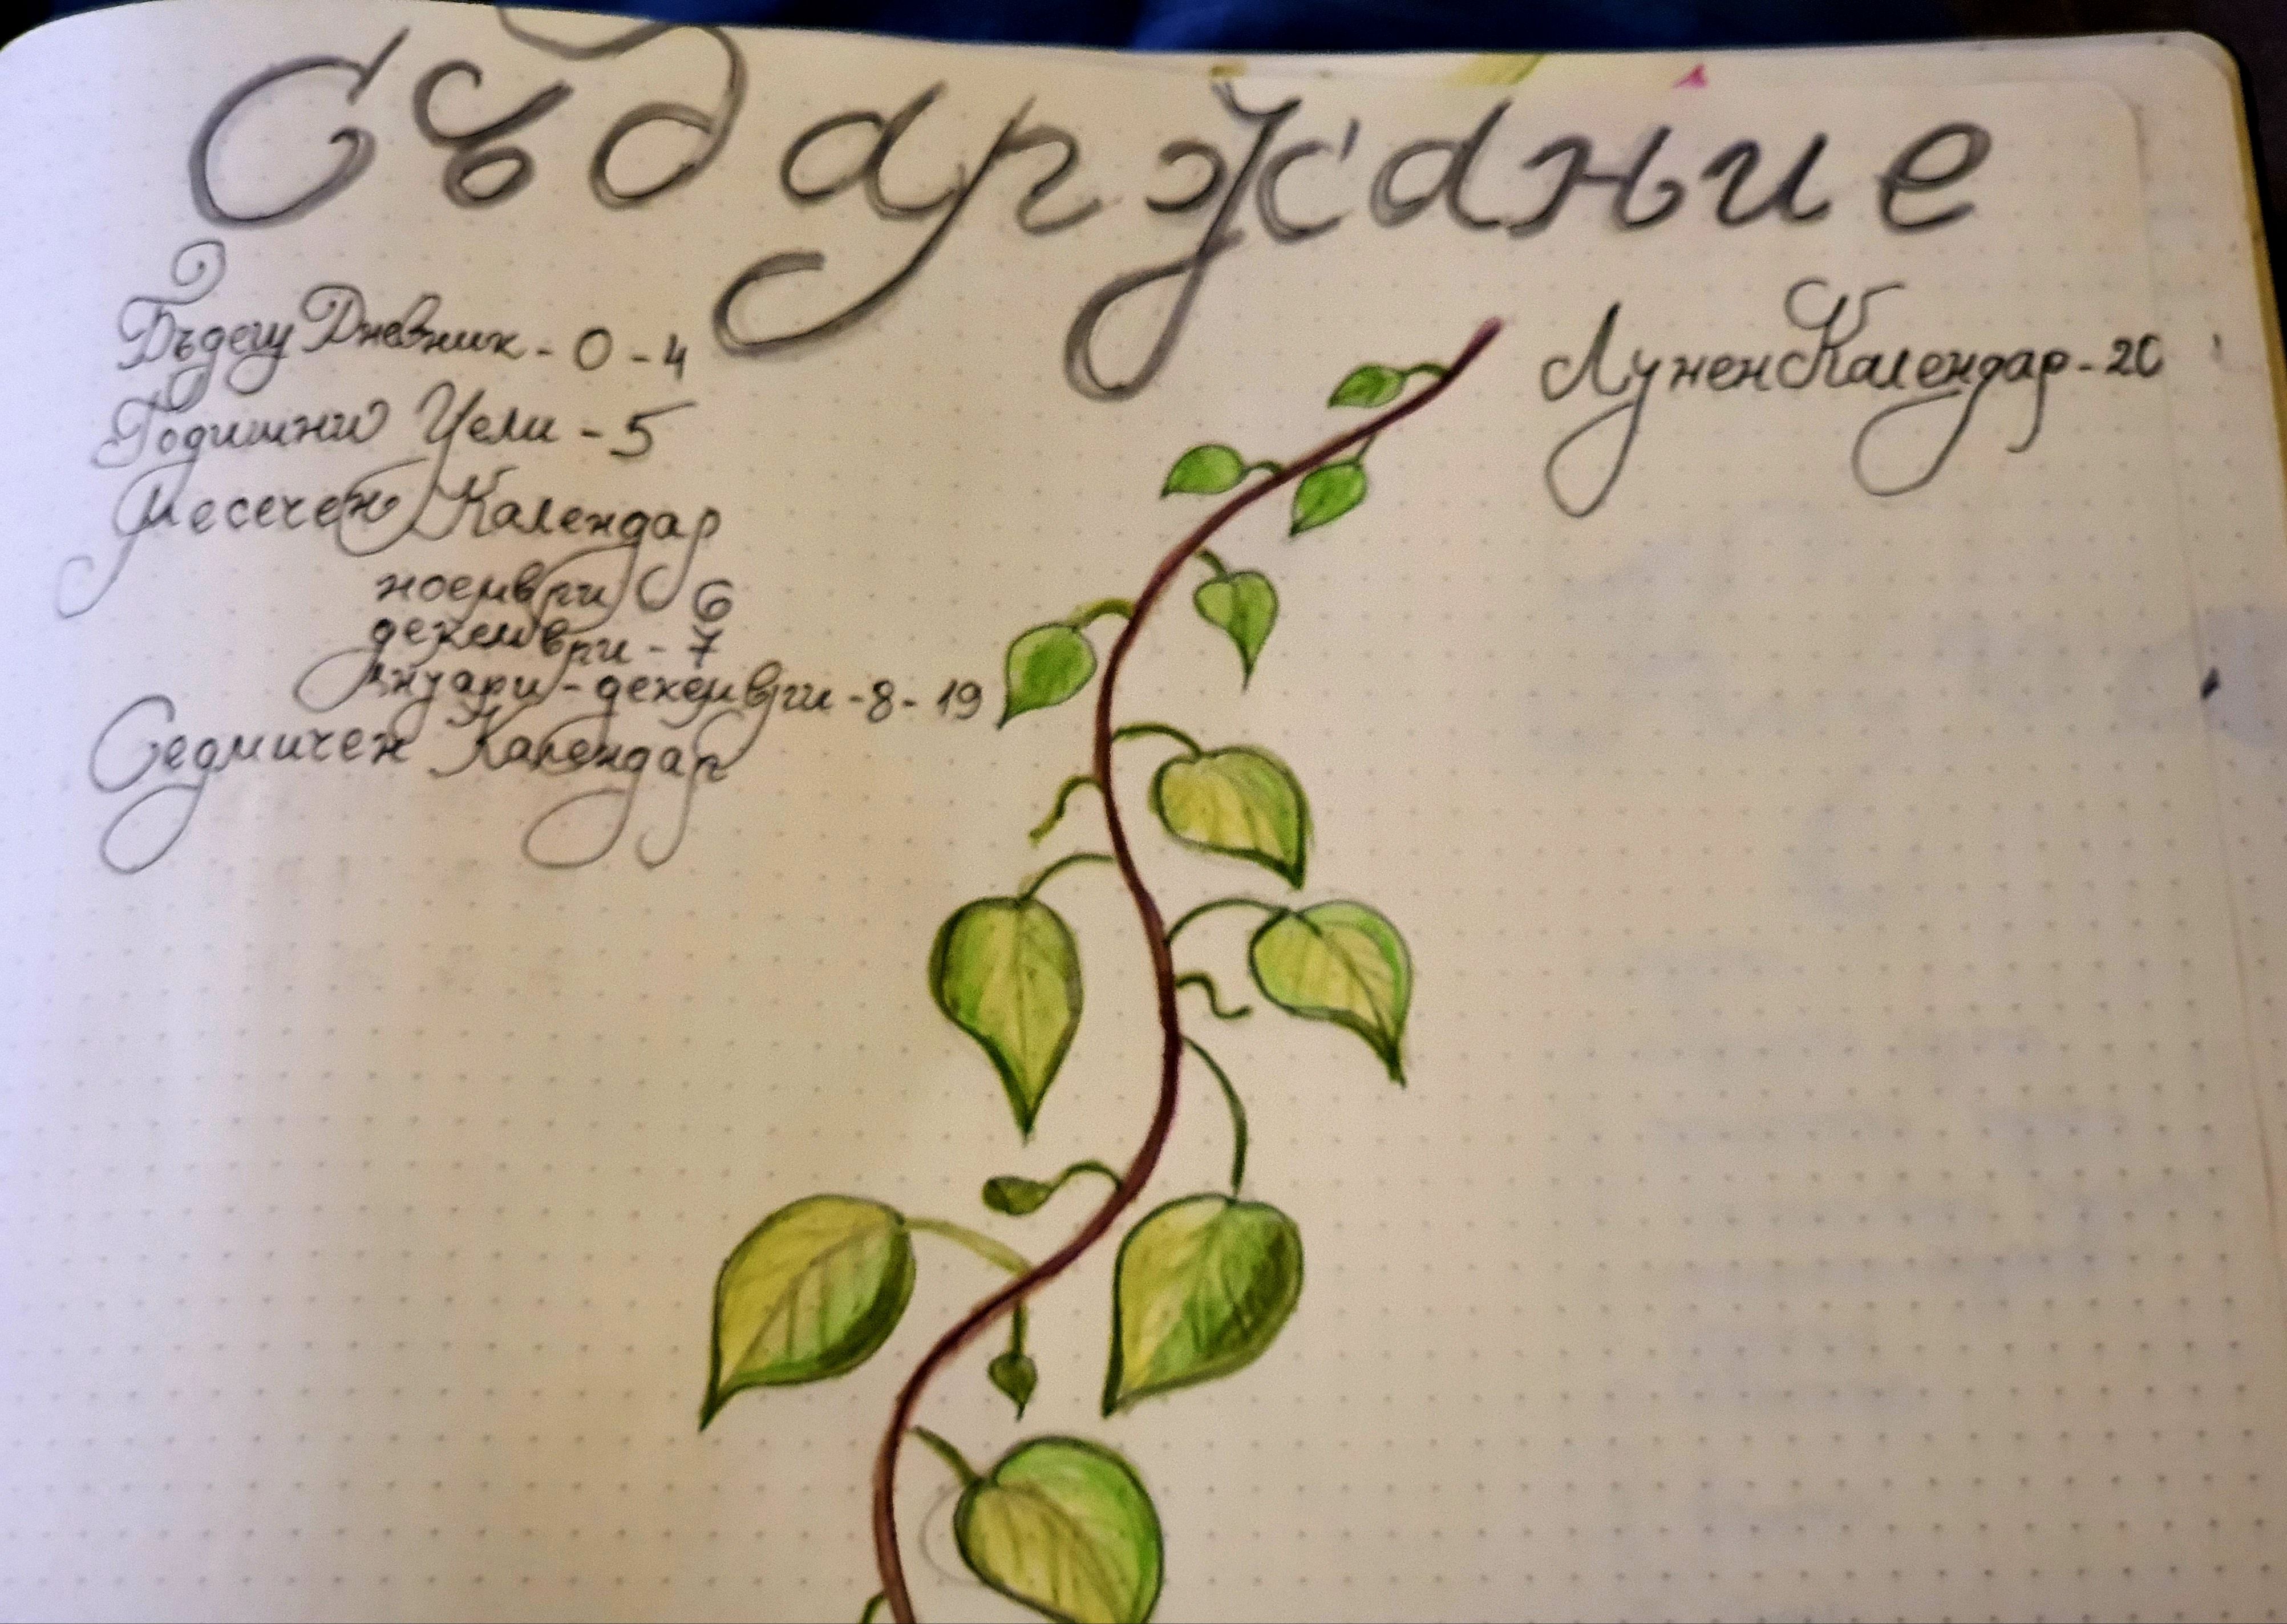 Съдаржание
Бъдещ Дневник - 0 - 4
Годишни Цели - 5
Месечен Календар
ноември 6
декември - 7
Януари - декември - 8 - 19
Седмичен Календар
Лунен Календар - 20